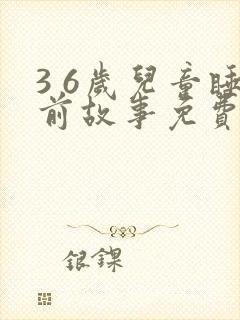 3 6歲兒童睡
前故事免費
銀鏁